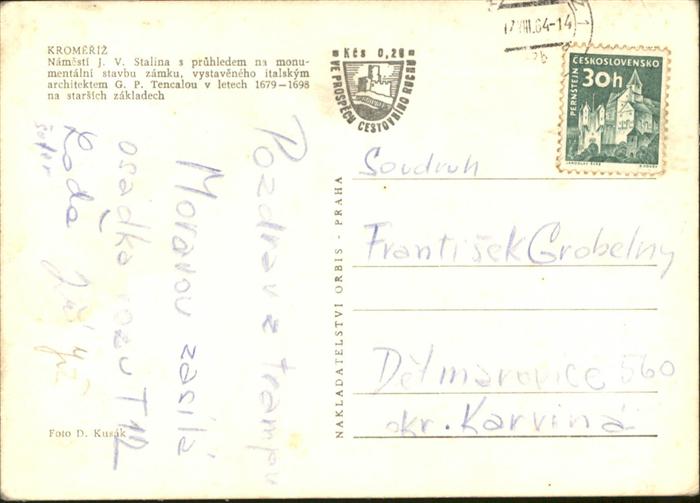 KROMĚŘÍŽ
Náměstí J. V. Stalina s průhledem na monu-
mentální stavbu zámku, vystavěného italským
architektem G. P. Tencalou v letech 1679–1698
na starších základech
Kčs 0,20
VE PROSPĚCH CESTOVNÍHO RUCHU
VIII.64-14
ČESKOSLOVENSKO
30h
PERNŠTEJN
Soudruh
František Grobelny
Dětmarovice 560
okr. Karviná
NAKLADATELSTVÍ ORBIS - PRAHA
Pozdrav z trampu
Moravou zasílá
osádka vozu T 112
Laďa Jiří
šofér
Foto D. Kusák